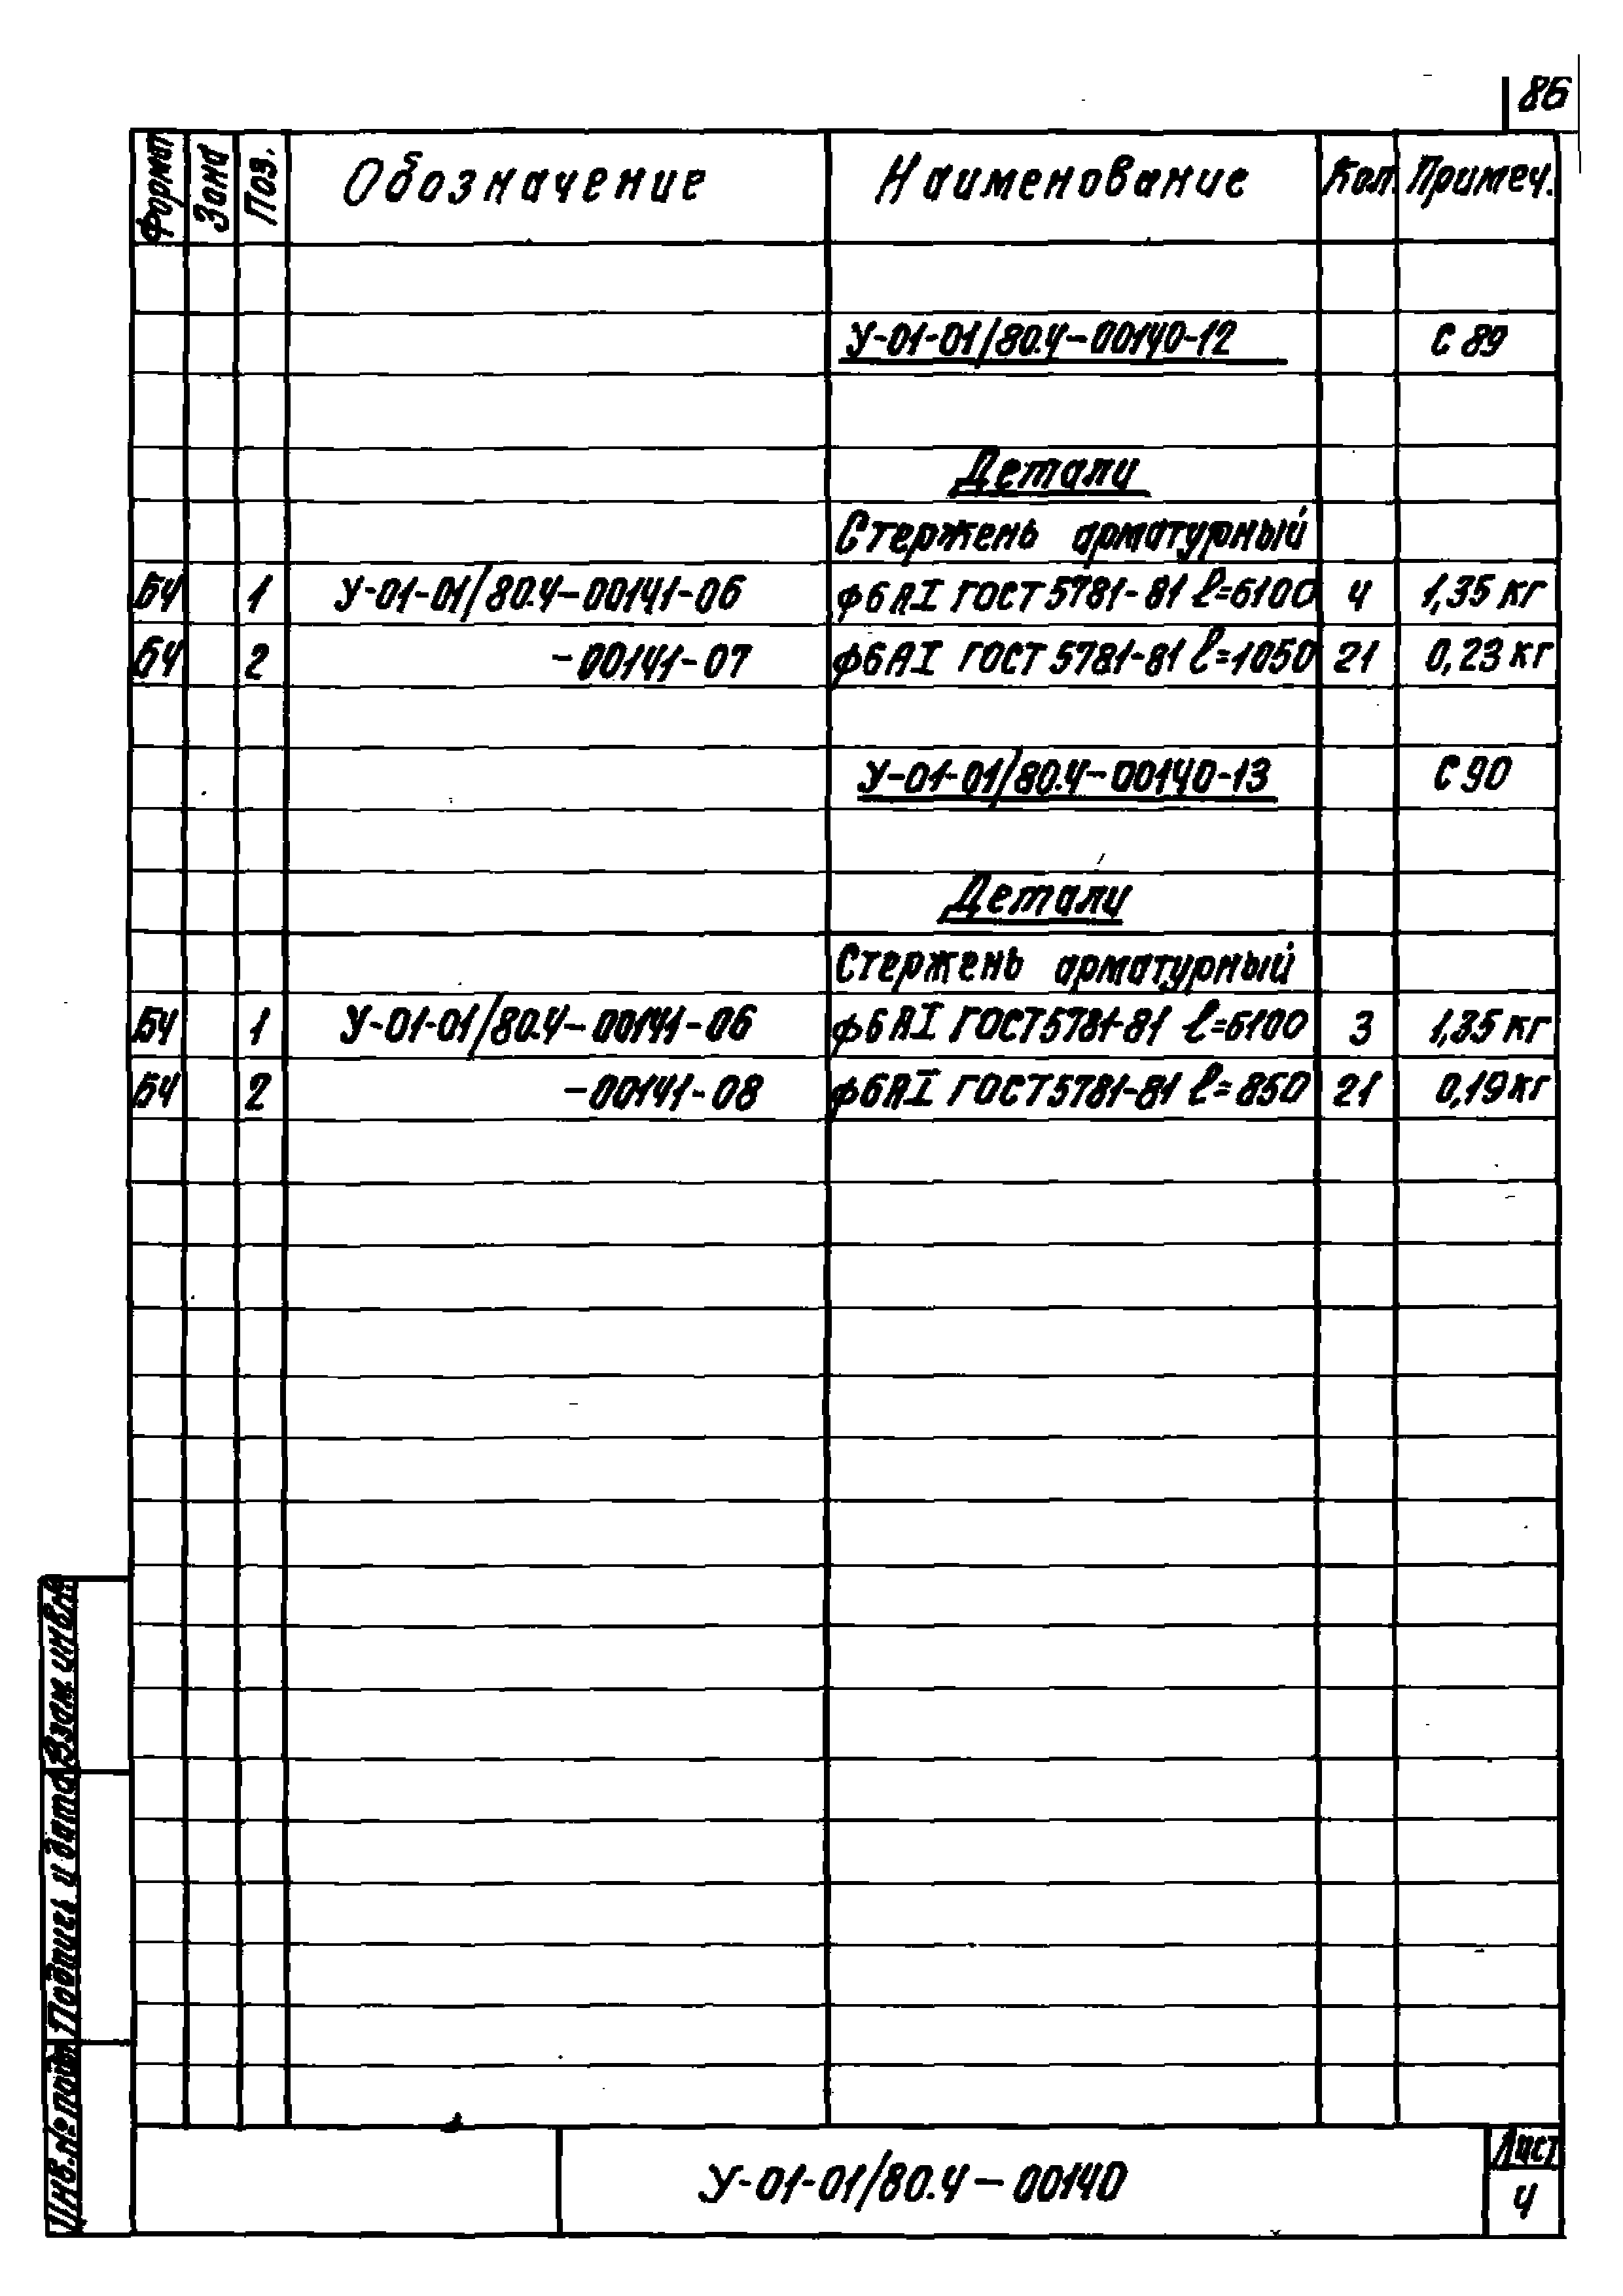 86
Формат Зона Поз. Обозначение Наименование Кол. Примеч.
У-01-01/80.4-00140-12 С 89
Детали
Стержень арматурный
БЧ 1 У-01-01/80.4-00141-06 ф6АI ГОСТ 5781-81 ℓ=6100 4 1,35 кг
БЧ 2 -00141-07 ф6АI ГОСТ 5781-81 ℓ=1050 21 0,23 кг
У-01-01/80.4-00140-13 С 90
Детали
Стержень арматурный
БЧ 1 У-01-01/80.4-00141-06 ф6АI ГОСТ 5781-81 ℓ=6100 3 1,35 кг
БЧ 2 -00141-08 ф6АI ГОСТ 5781-81 ℓ=850 21 0,19 кг
Взам. инв. №
Подпись и дата
Инв. № подл.
У-01-01/80.4-00140
Лист
4